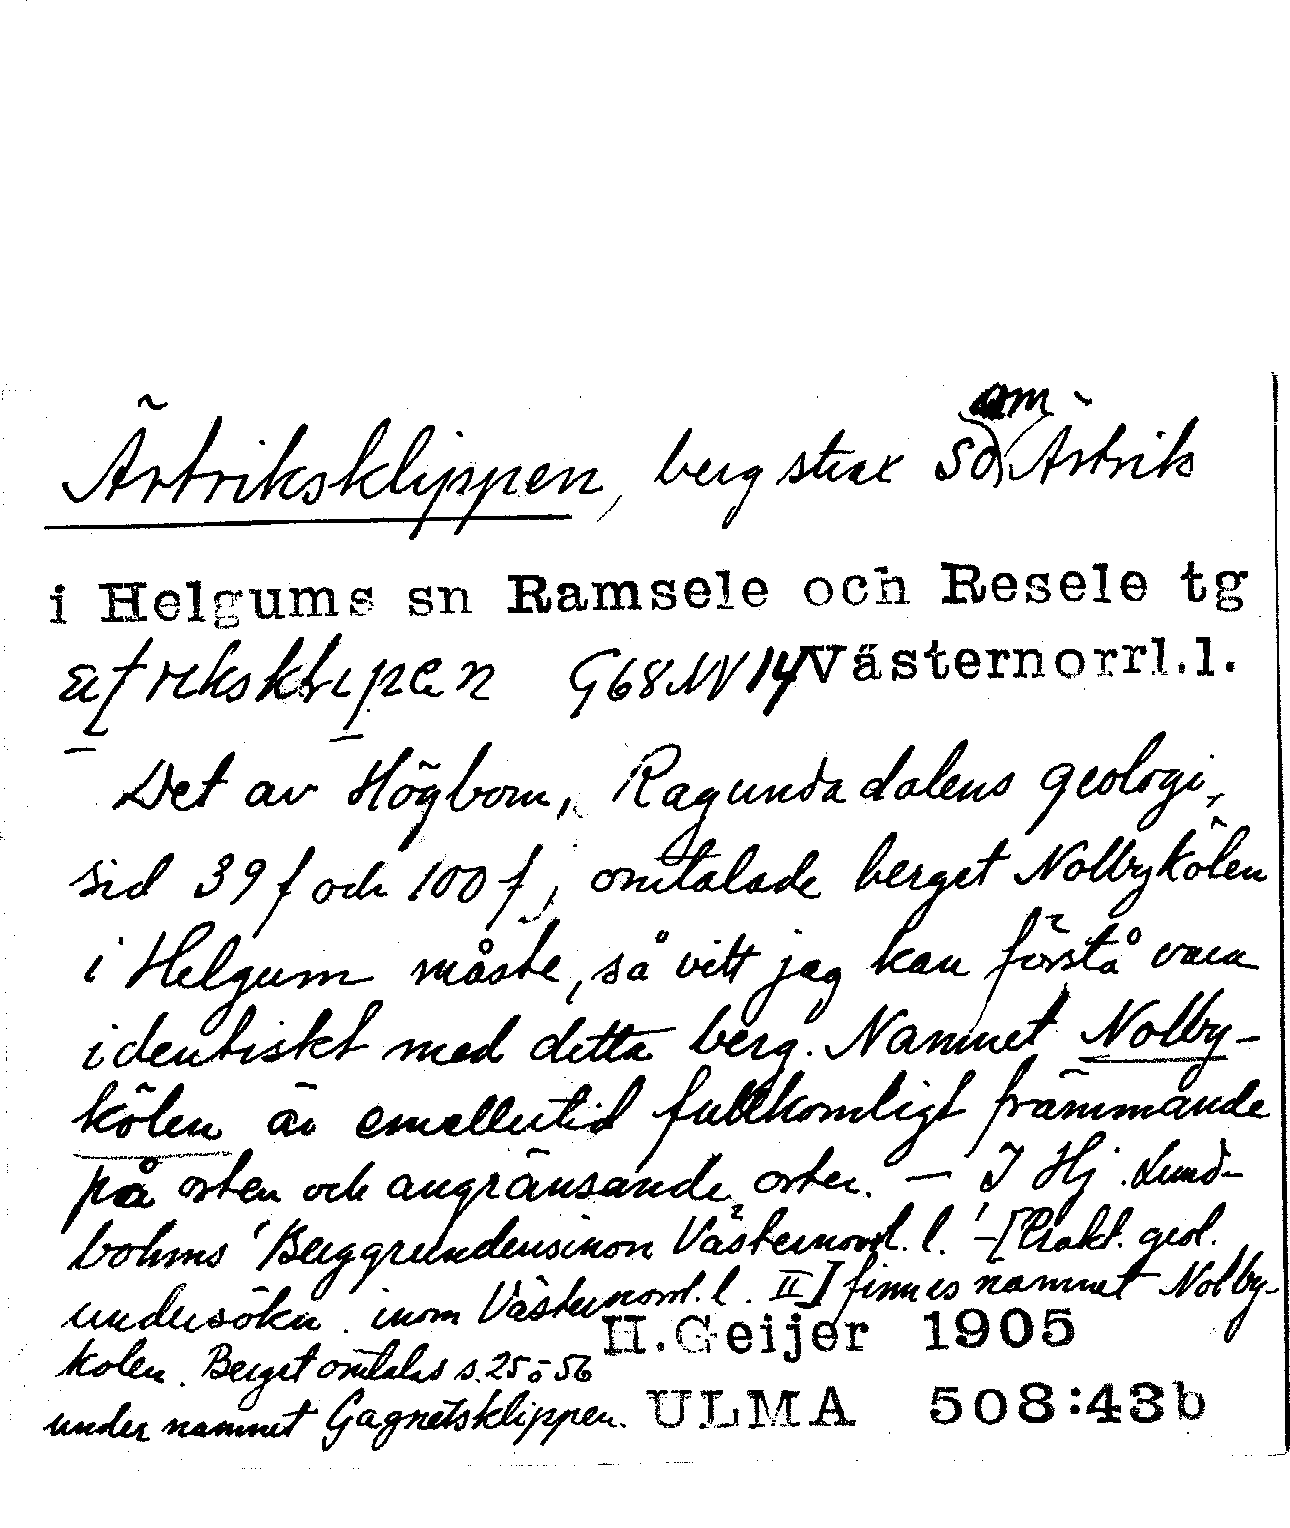 Ärtriksklippen, berg strax SO om Ärtrik
i Helgums sn Ramsele och Resele tg
G68NV14 Västernorrl.l.
Det av Högbom, Ragundadalens geologi,
sid 39 f och 100 f, omtalade berget Nolbykölen
i Helgum måste, så vitt jag kan förstå vara
identiskt med detta berg. Namnet Nolby-
kölen är emellertid fullkomligt främmande
på orten och angränsande orter. — I Hj. Lund-
bohms 'Berggrunden inom Västernorrl. l.' - [Prakt. geol.
undersökn. inom Västernorrl. l. II] finnes namnet Nolby-
kölen. Berget omtalas s. 25 o 56
under namnet Gagnetsklippen.
H.Geijer 1905
ULMA 508:43b